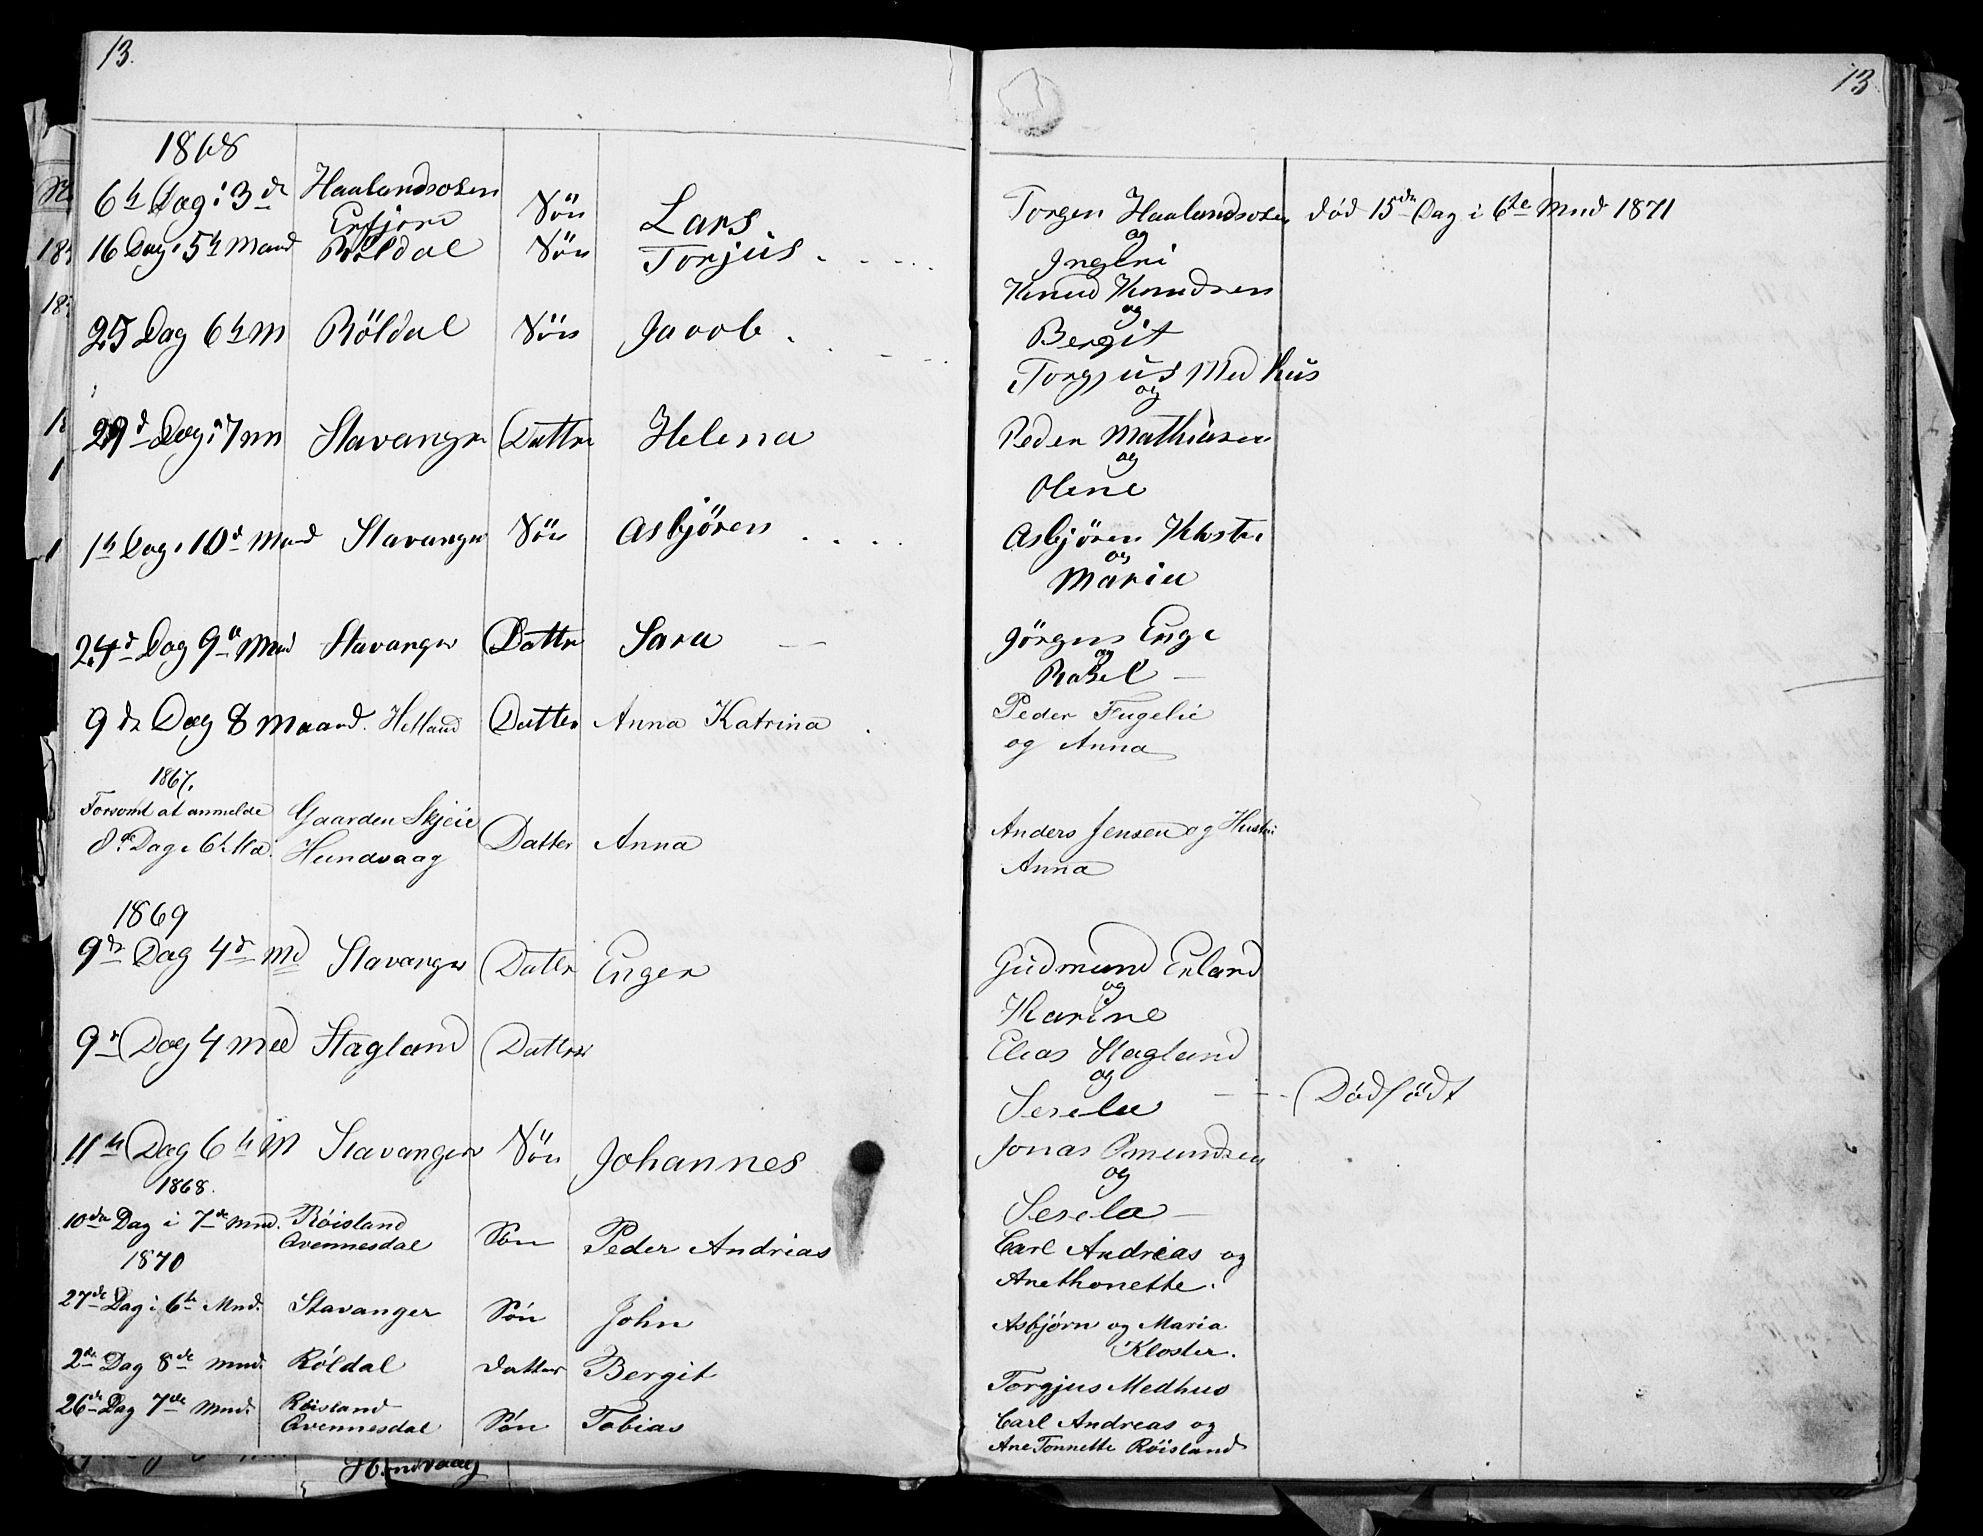 13.
13
1868
6te Dag i 3de Haalandsosen Søn Lars
Erfjord
16 Dag i 5te Maand Röldal Sön Torjus
25 Dag 6te M Röldal Sön Jacob
29d Dag i 7 M Stavanger Datter Helena
1te Dag i 10d Mand Stavanger Sön Asbjören
24d Dag 9de Mand Stavanger Datter Sara
9de Dag 8 Maand. Helland Datter Anna Katrina
1867.
Forsomt at anmelde Gaarden Skjeie
8de Dag i 6te Ma. Hundvaag Datter Anna
1869
9de Dag 4de Md Stavanger Datter Enger
9d Dag 4 Md Stagland Datter
11te Dag 6te M Stavanger Sön Johannes
1868.
10de Dag i 7de Mnd. Röisland Søn Peder Andrias
Qvennesdal
1870
27de Dag i 6te Mnd. Stavanger Søn John
2de Dag 8de Mnd. Röldal Datter Bergit
26de Dag 7de Mnd. Röisland Søn Tobias
Qvennesdal
Hundvaag
Torgen Haalandsosen død 15de Dag i 6te Mnd 1871
og
Ingeri
Knud Knudsen
og
Bergit
Torgjus Medhus
og
Peder Mathiasen
og
Olene
Asbjören Kloster
og
Maria
Jörgen Enge
og
Rakel
Peder Fugelie
og Anna
Anders Jensen og Hustru
Anna
Gudmund Erland
og
Karine
Elias Stagland
og
Serela Dødfödt
Jonas Osmundsen
og
Serela
Carl Andreas og
Anethonette.
Asbjørn og Maria
Kloster.
Torgjus Medhus
Carl Andreas og
Ane Tonnette Röisland